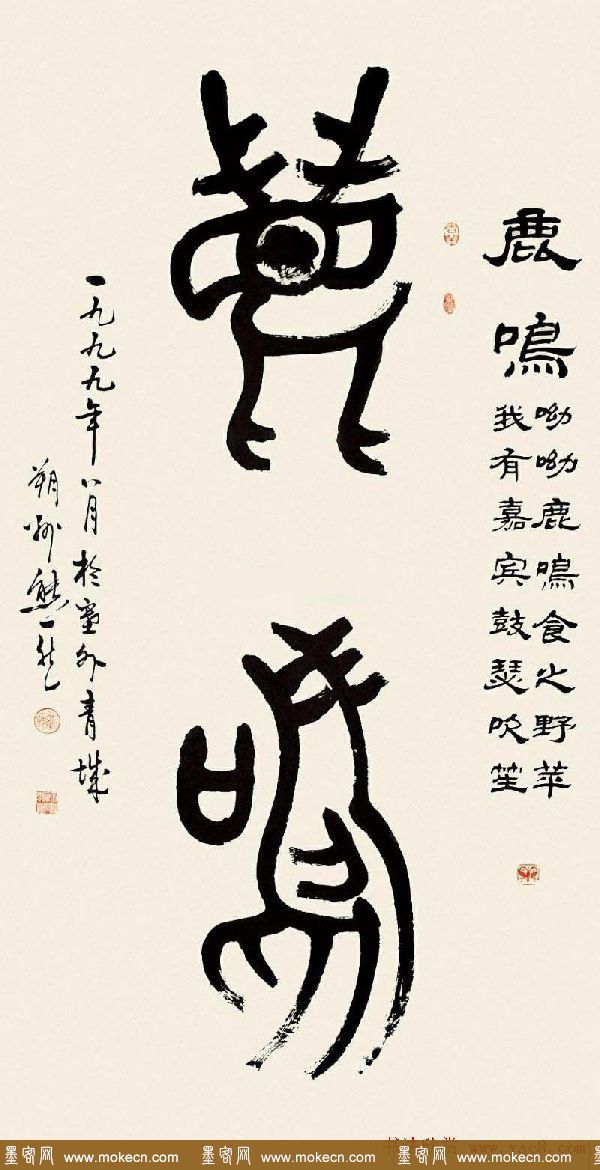 鹿鳴
呦呦鹿鳴食之野苹
我有嘉宾鼓瑟吹笙
鹿鳴
一九九九年八月於塞外青城
朔州熊一
墨客网 www.mokecn.com 墨客网 www.mokecn.com 墨客网 www.mokecn.com 墨客网 www.mokecn.com